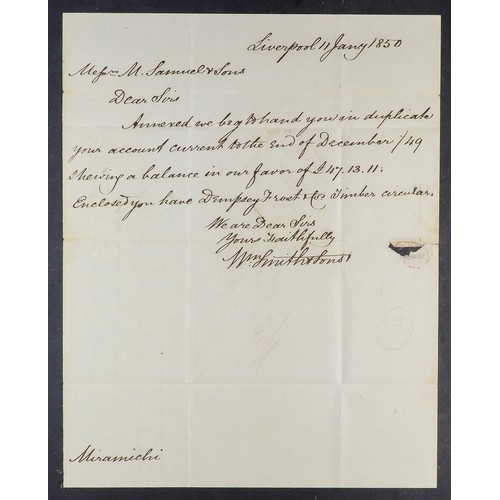 Liverpool 11 Jany 1850
Messrs M. Samuel & Sons
Dear Sirs
Annexed we beg to hand you in duplicate
your account current to the End of December /49
shewing a balance in our favor of £47.13.11.
Enclosed you have Dempsey Frost & Co Timber circular.
We are Dear Sirs
Yours Faithfully
Wm Smith & Sons
Miramichi